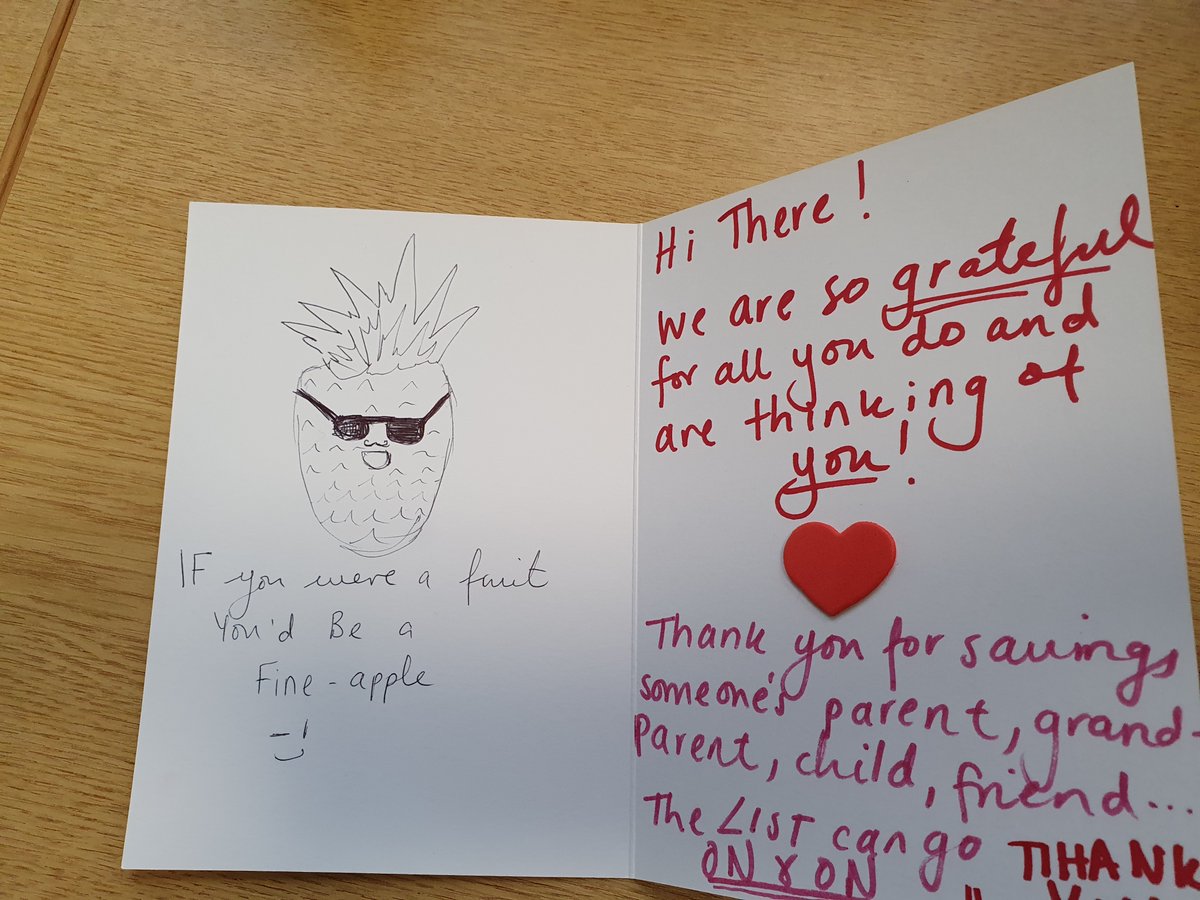 IF you were a fruit
You'd Be a
Fine-apple
Hi There!
We are so grateful
for all you do and
are thinking of
you!
Thank you for savings
someone's parent, grand-
parent, child, friend...
The LIST can go
ON & ON
THANK